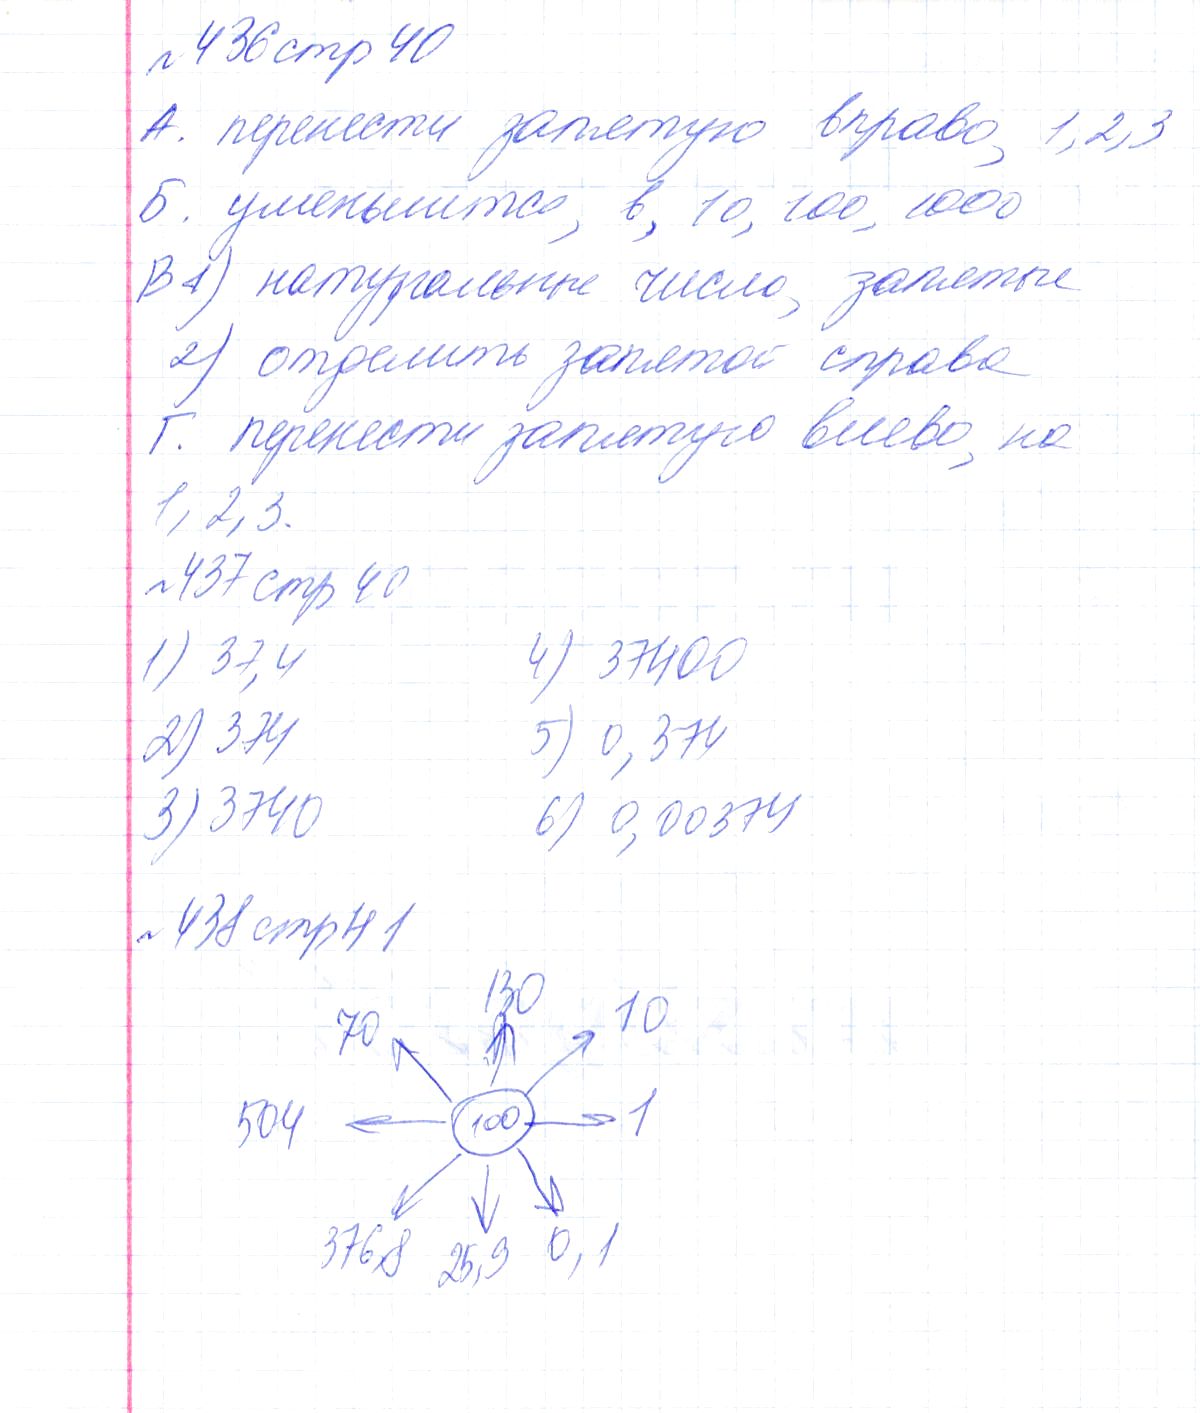 №436 стр 40
А. перенести запятую вправо, 1, 2, 3
Б. уменьшится, в, 10, 100, 1000
В 1) натуральные число, запятые
2) отделить запятой справа
Г. перенести запятую влево, на
1, 2, 3.
№437 стр 40
1) 37,4 4) 37400
2) 374 5) 0,374
3) 3740 6) 0,00374
№438 стр 41
70 130 10
504 100 1
376,8 25,9 0,1